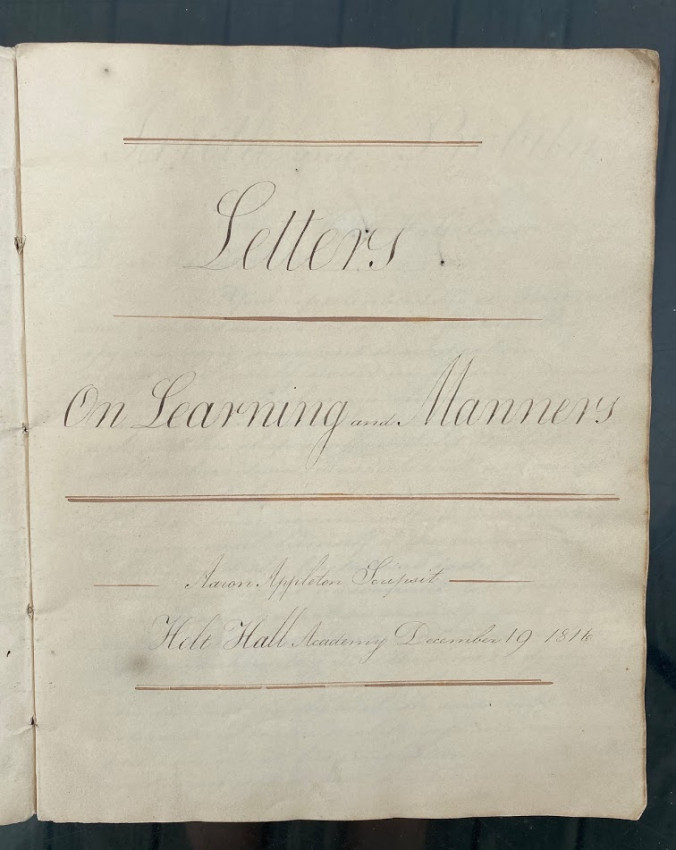 Letters
On Learning and Manners
Aaron Appleton Scripsit
Holt Hall Academy December 19 1816